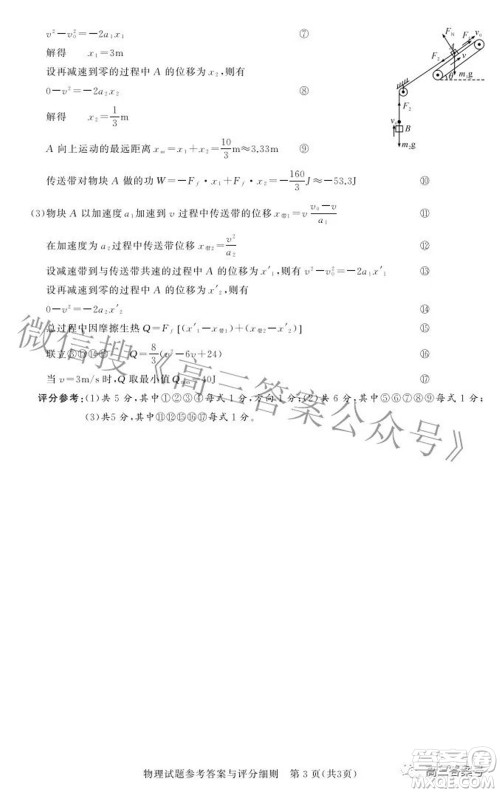 v²－v₀²＝－2a₁x₁ ⑦
解得 x₁＝3m
设再减速到零的过程中 A 的位移为 x₂,则有
0－v²＝－2a₂x₂ ⑧
解得 x₂＝1/3 m
A 向上运动的最远距离 xₘ＝x₁＋x₂＝10/3 m≈3.33m ⑨
传送带对物块 A 做的功 W＝－F_f·x₁＋F_f·x₂＝－160/3 J≈－53.3J ⑩
(3)物块 A 以加速度 a₁加速到 v 过程中传送带的位移 x带₁＝v (v₀－v)/a₁ ⑪
在加速度为 a₂过程中传送带位移 x带₂＝v²/a₂ ⑫
设减速带到与传送带共速的过程中 A 的位移为 x′₁，则有 v²－v₀²＝－2a₁x′₁ ⑬
设再减速到零的过程中 A 的位移为 x′₂
0－v²＝－2a₂x′₂ ⑭
总过程中因摩擦生热 Q＝F_f[(x′₁－x带₁)＋(x带₂－x′₂)] ⑮
联立⑪⑫⑬⑭⑮ Q＝8/3(v²－6v＋24) ⑯
当 v＝3m/s 时,Q 取最小值 40J ⑰
评分参考:(1)共 5 分,其中①②③④每式 1 分,方向 1 分;(2)共 6 分,其中⑤⑥⑦⑧⑨⑩每式 1 分;
(3)共5 分,其中⑪⑫⑮⑯⑰每式 1 分。
F_N
F_f
v₀
F₂
v
m₁g
F₂
v₀
B
m₂g
微信搜《高三答案公众号》
物理试题参考答案与评分细则 第 3 页(共3页)
高三答案号